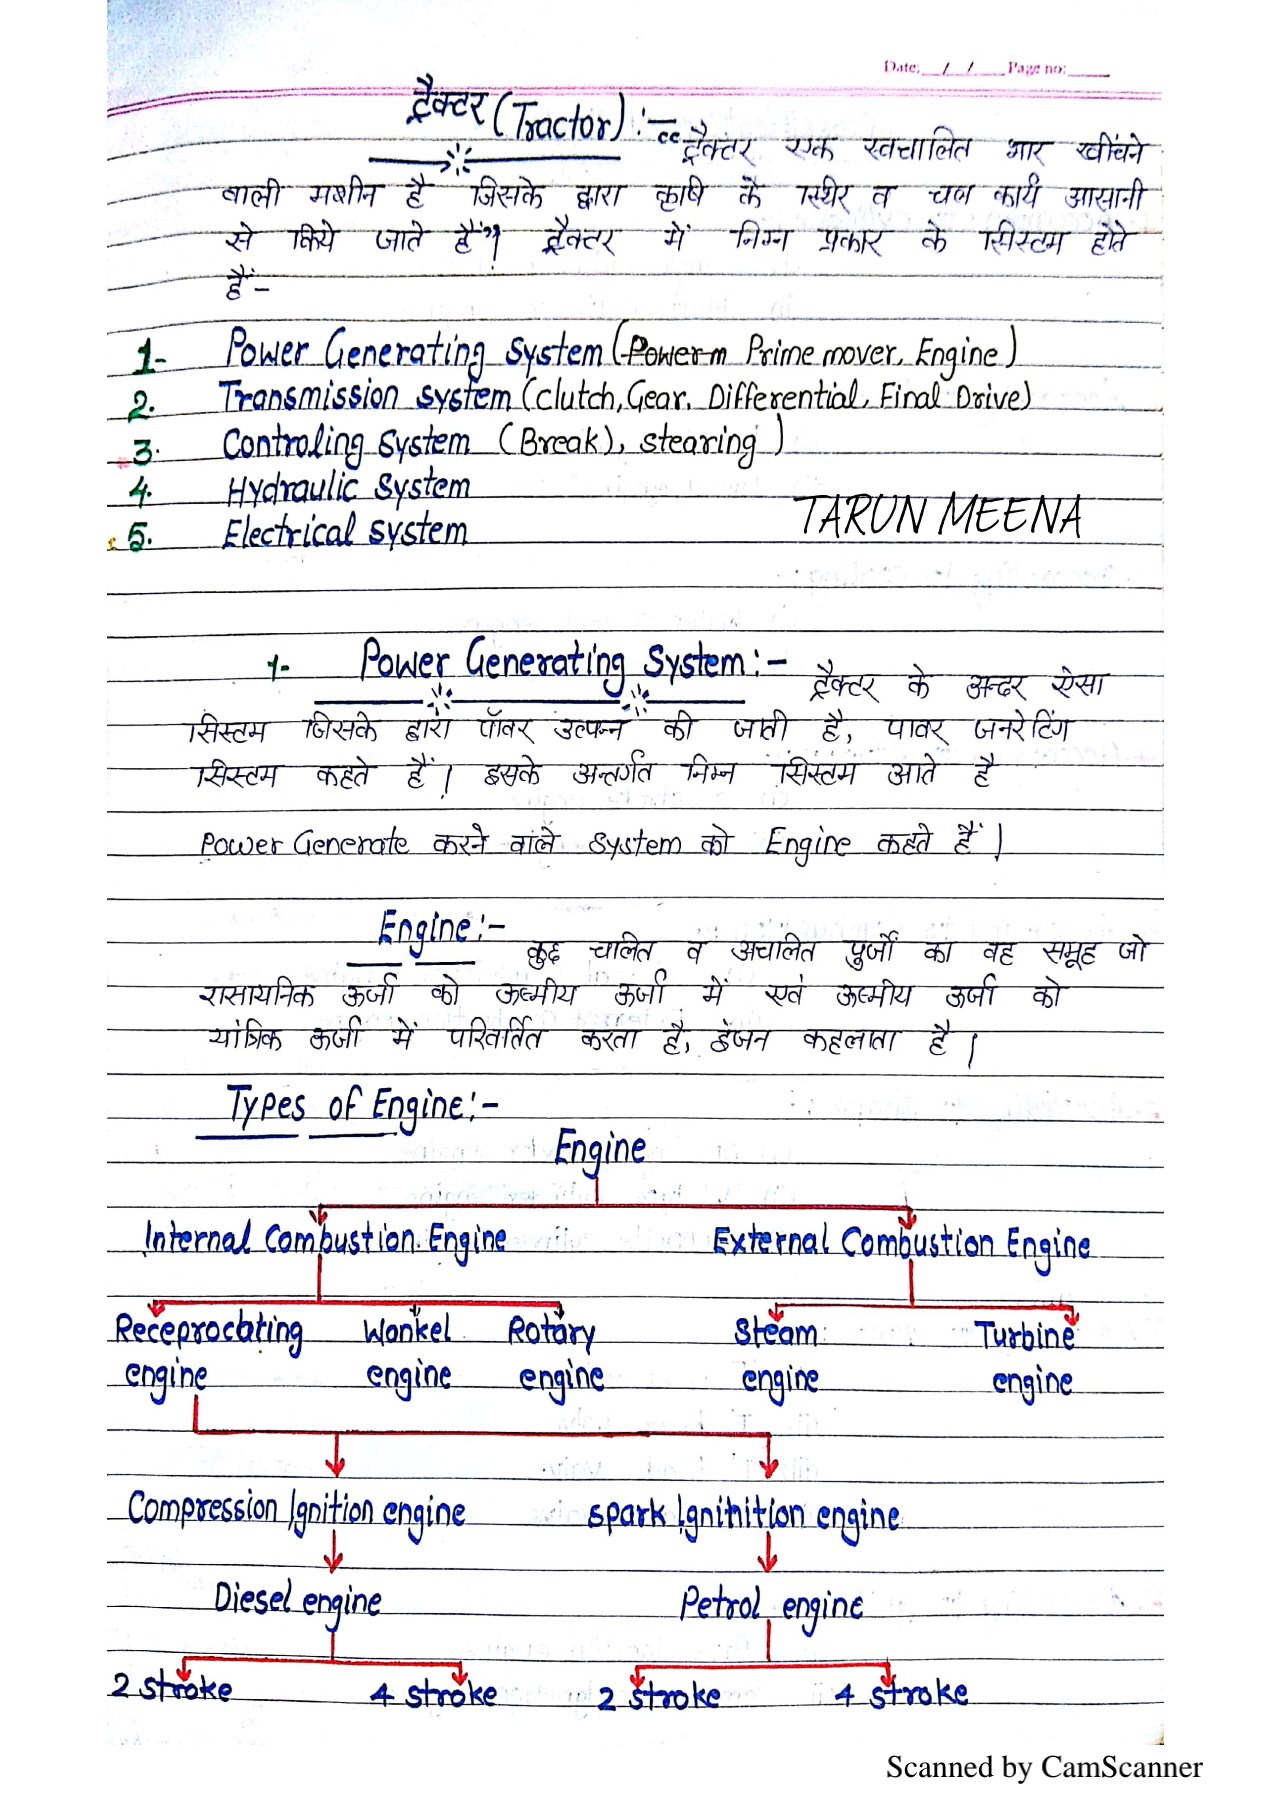 Date: __/__/____ Page no: _____
ट्रैक्टर (Tractor) :- "ट्रैक्टर एक स्वचालित भार खींचने
वाली मशीन है जिसके द्वारा कृषि के स्थिर व चल कार्य आसानी
से किये जाते हैं"। ट्रैक्टर में निम्न प्रकार के सिस्टम होते
हैं-
1- Power Generating System (Power m Prime mover, Engine)
2. Transmission system (clutch, Gear, Differential, Final Drive)
3. Controling System (Break), stearing)
4. Hydraulic System
TARUN MEENA
5. Electrical system
1- Power Generating System :- ट्रैक्टर के अन्दर ऐसा
सिस्टम जिसके द्वारा पॉवर उत्पन्न की जाती है, पावर जनरेटिंग
सिस्टम कहते हैं। इसके अन्तर्गत निम्न सिस्टम आते है
Power Generate करने वाले System को Engine कहते हैं।
Engine :- कुछ चालित व अचालित पुर्जों का वह समूह जो
रासायनिक ऊर्जा को ऊष्मीय ऊर्जा में एवं ऊष्मीय ऊर्जा को
यांत्रिक ऊर्जा में परिवर्तित करता है, इंजन कहलाता है।
Types of Engine :-
Engine
Internal Combustion Engine External Combustion Engine
Receprocating Wankel Rotary Steam Turbine
engine engine engine engine engine
Compression Ignition engine spark Ignihition engine
Diesel engine Petrol engine
2 stroke 4 stroke 2 stroke 4 stroke
Scanned by CamScanner